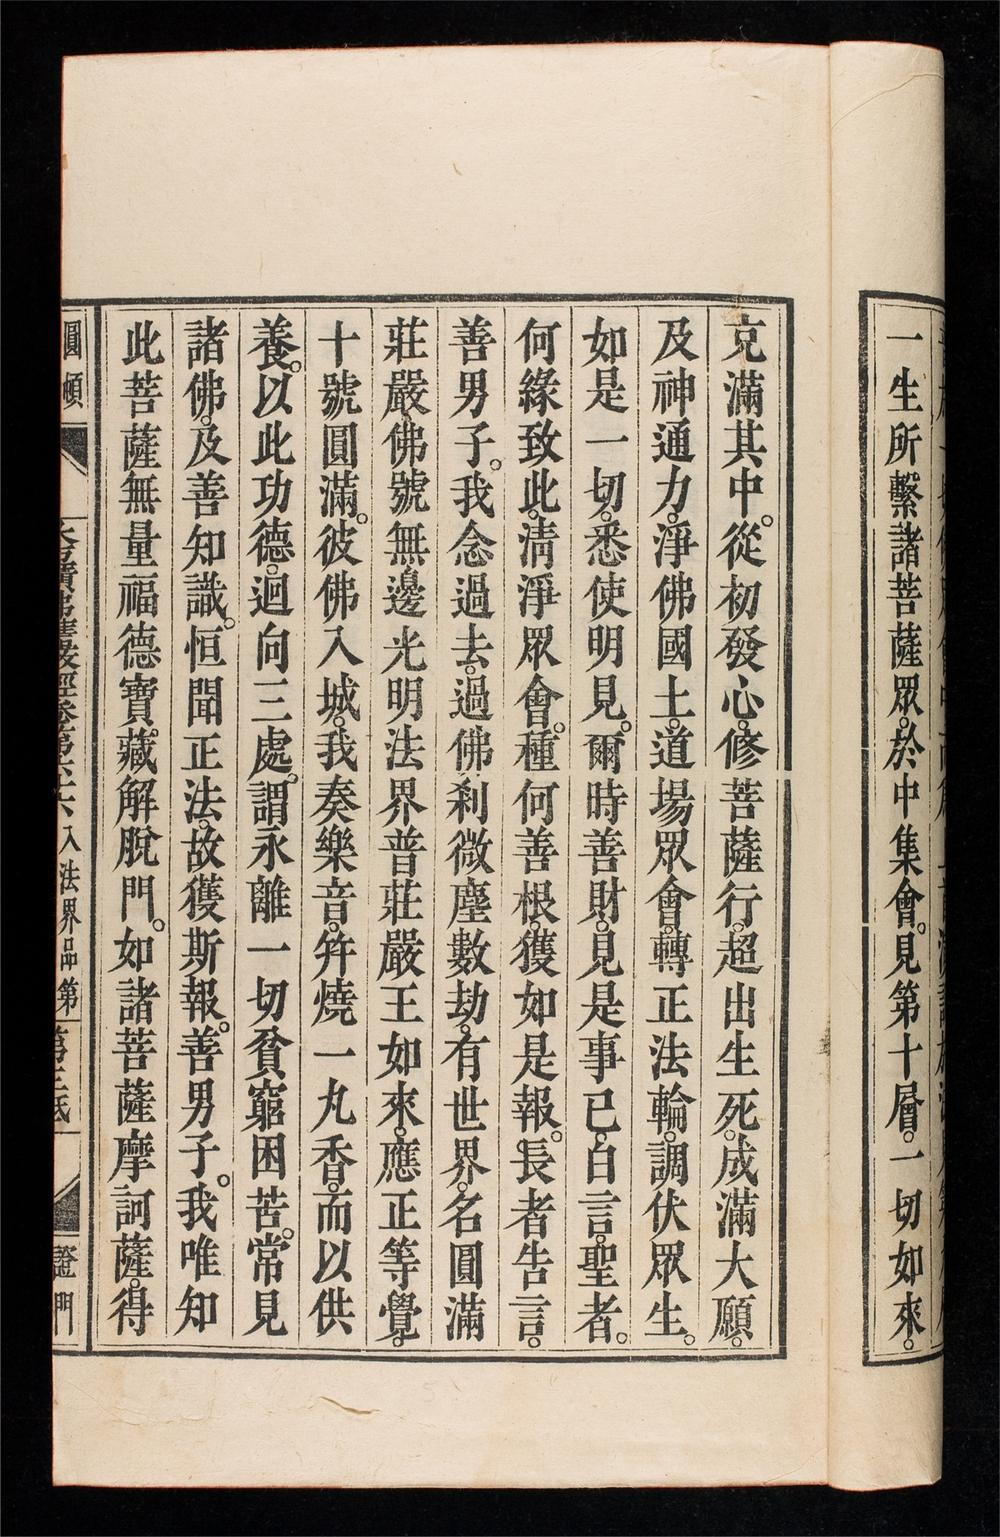 一生所繫諸菩薩眾。於中集會。見第十層。一切如來。
充滿其中。從初發心。修菩薩行。超出生死。成滿大願。
及神通力。淨佛國土。道場眾會。轉正法輪。調伏眾生。
如是一切。悉使明見。爾時善財。見是事已。白言。聖者。
何緣致此。清淨眾會。種何善根。獲如是報。長者告言。
善男子。我念過去。過佛剎微塵數劫。有世界。名圓滿
莊嚴。佛號無邊光明法界普莊嚴王如來。應正等覺。
十號圓滿。彼佛入城。我奏樂音。并燒一丸香。而以供
養。以此功德。迴向三處。謂永離一切貧窮困苦。常見
諸佛。及善知識。恒聞正法。故獲斯報。善男子。我唯知
此菩薩無量福德寶藏解脫門。如諸菩薩摩訶薩。得
圓頓
大方廣佛華嚴經卷第六十六 入法界品第
第三氐
證門